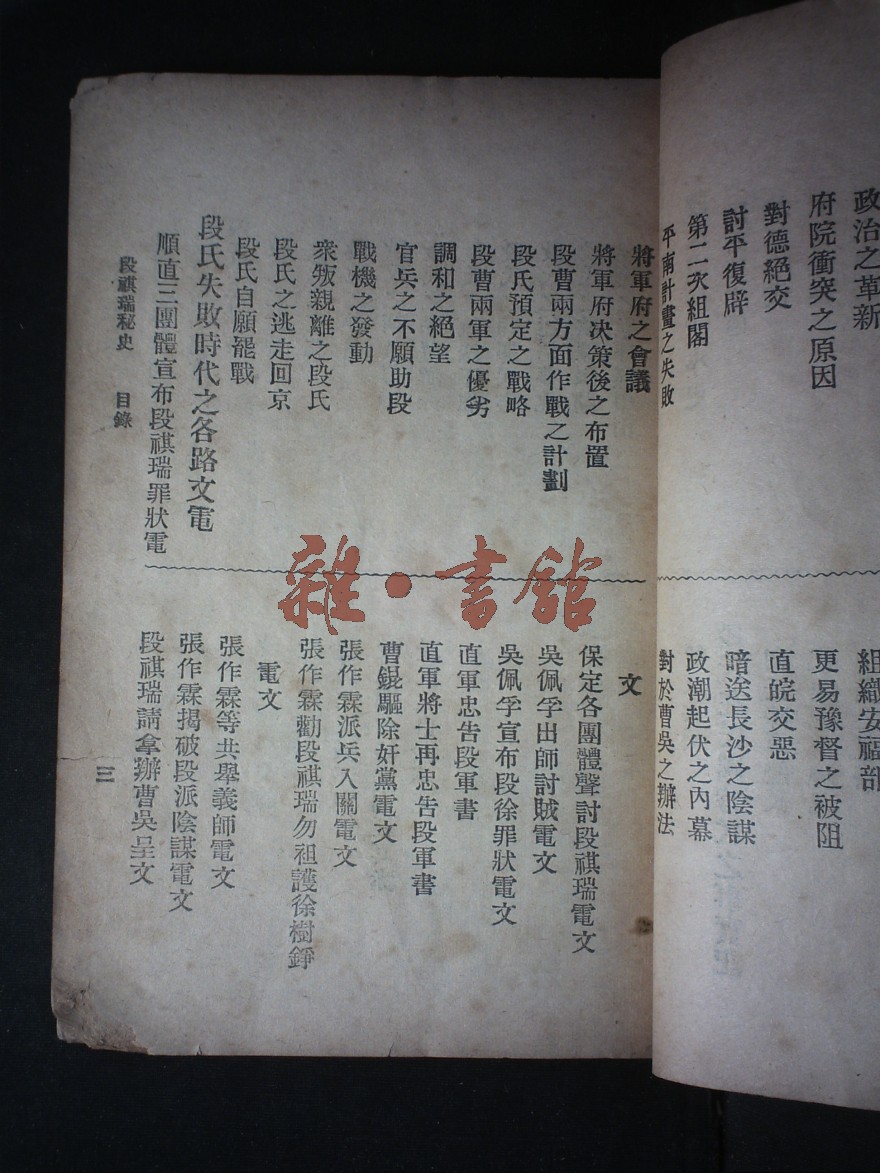 政治之革新
府院衝突之原因
對德絕交
討平復辟
第二次組閣
平南計畫之失敗
組織安福部
更易豫督之被阻
直皖交惡
暗送長沙之陰謀
政潮起伏之內幕
對於曹吳之辦法
將軍府之會議
將軍府決策後之布置
段曹兩方面作戰之計劃
段氏預定之戰略
段曹兩軍之優劣
調和之絕望
官兵之不願助段
戰機之發動
衆叛親離之段氏
段氏之逃走回京
段氏自願罷戰
段氏失敗時代之各路文電
順直三團體宣布段祺瑞罪狀電
文
保定各團體聲討段祺瑞電文
吳佩孚出師討賊電文
吳佩孚宣布段徐罪狀電文
直軍忠告段軍書
直軍將士再忠告段軍書
曹錕驅除奸黨電文
張作霖派兵入關電文
張作霖勸段祺瑞勿袒護徐樹錚
電文
張作霖等共舉義師電文
張作霖揭破段派陰謀電文
段祺瑞請拿辦曹吳呈文
段祺瑞秘史 目錄
三
雜·書館